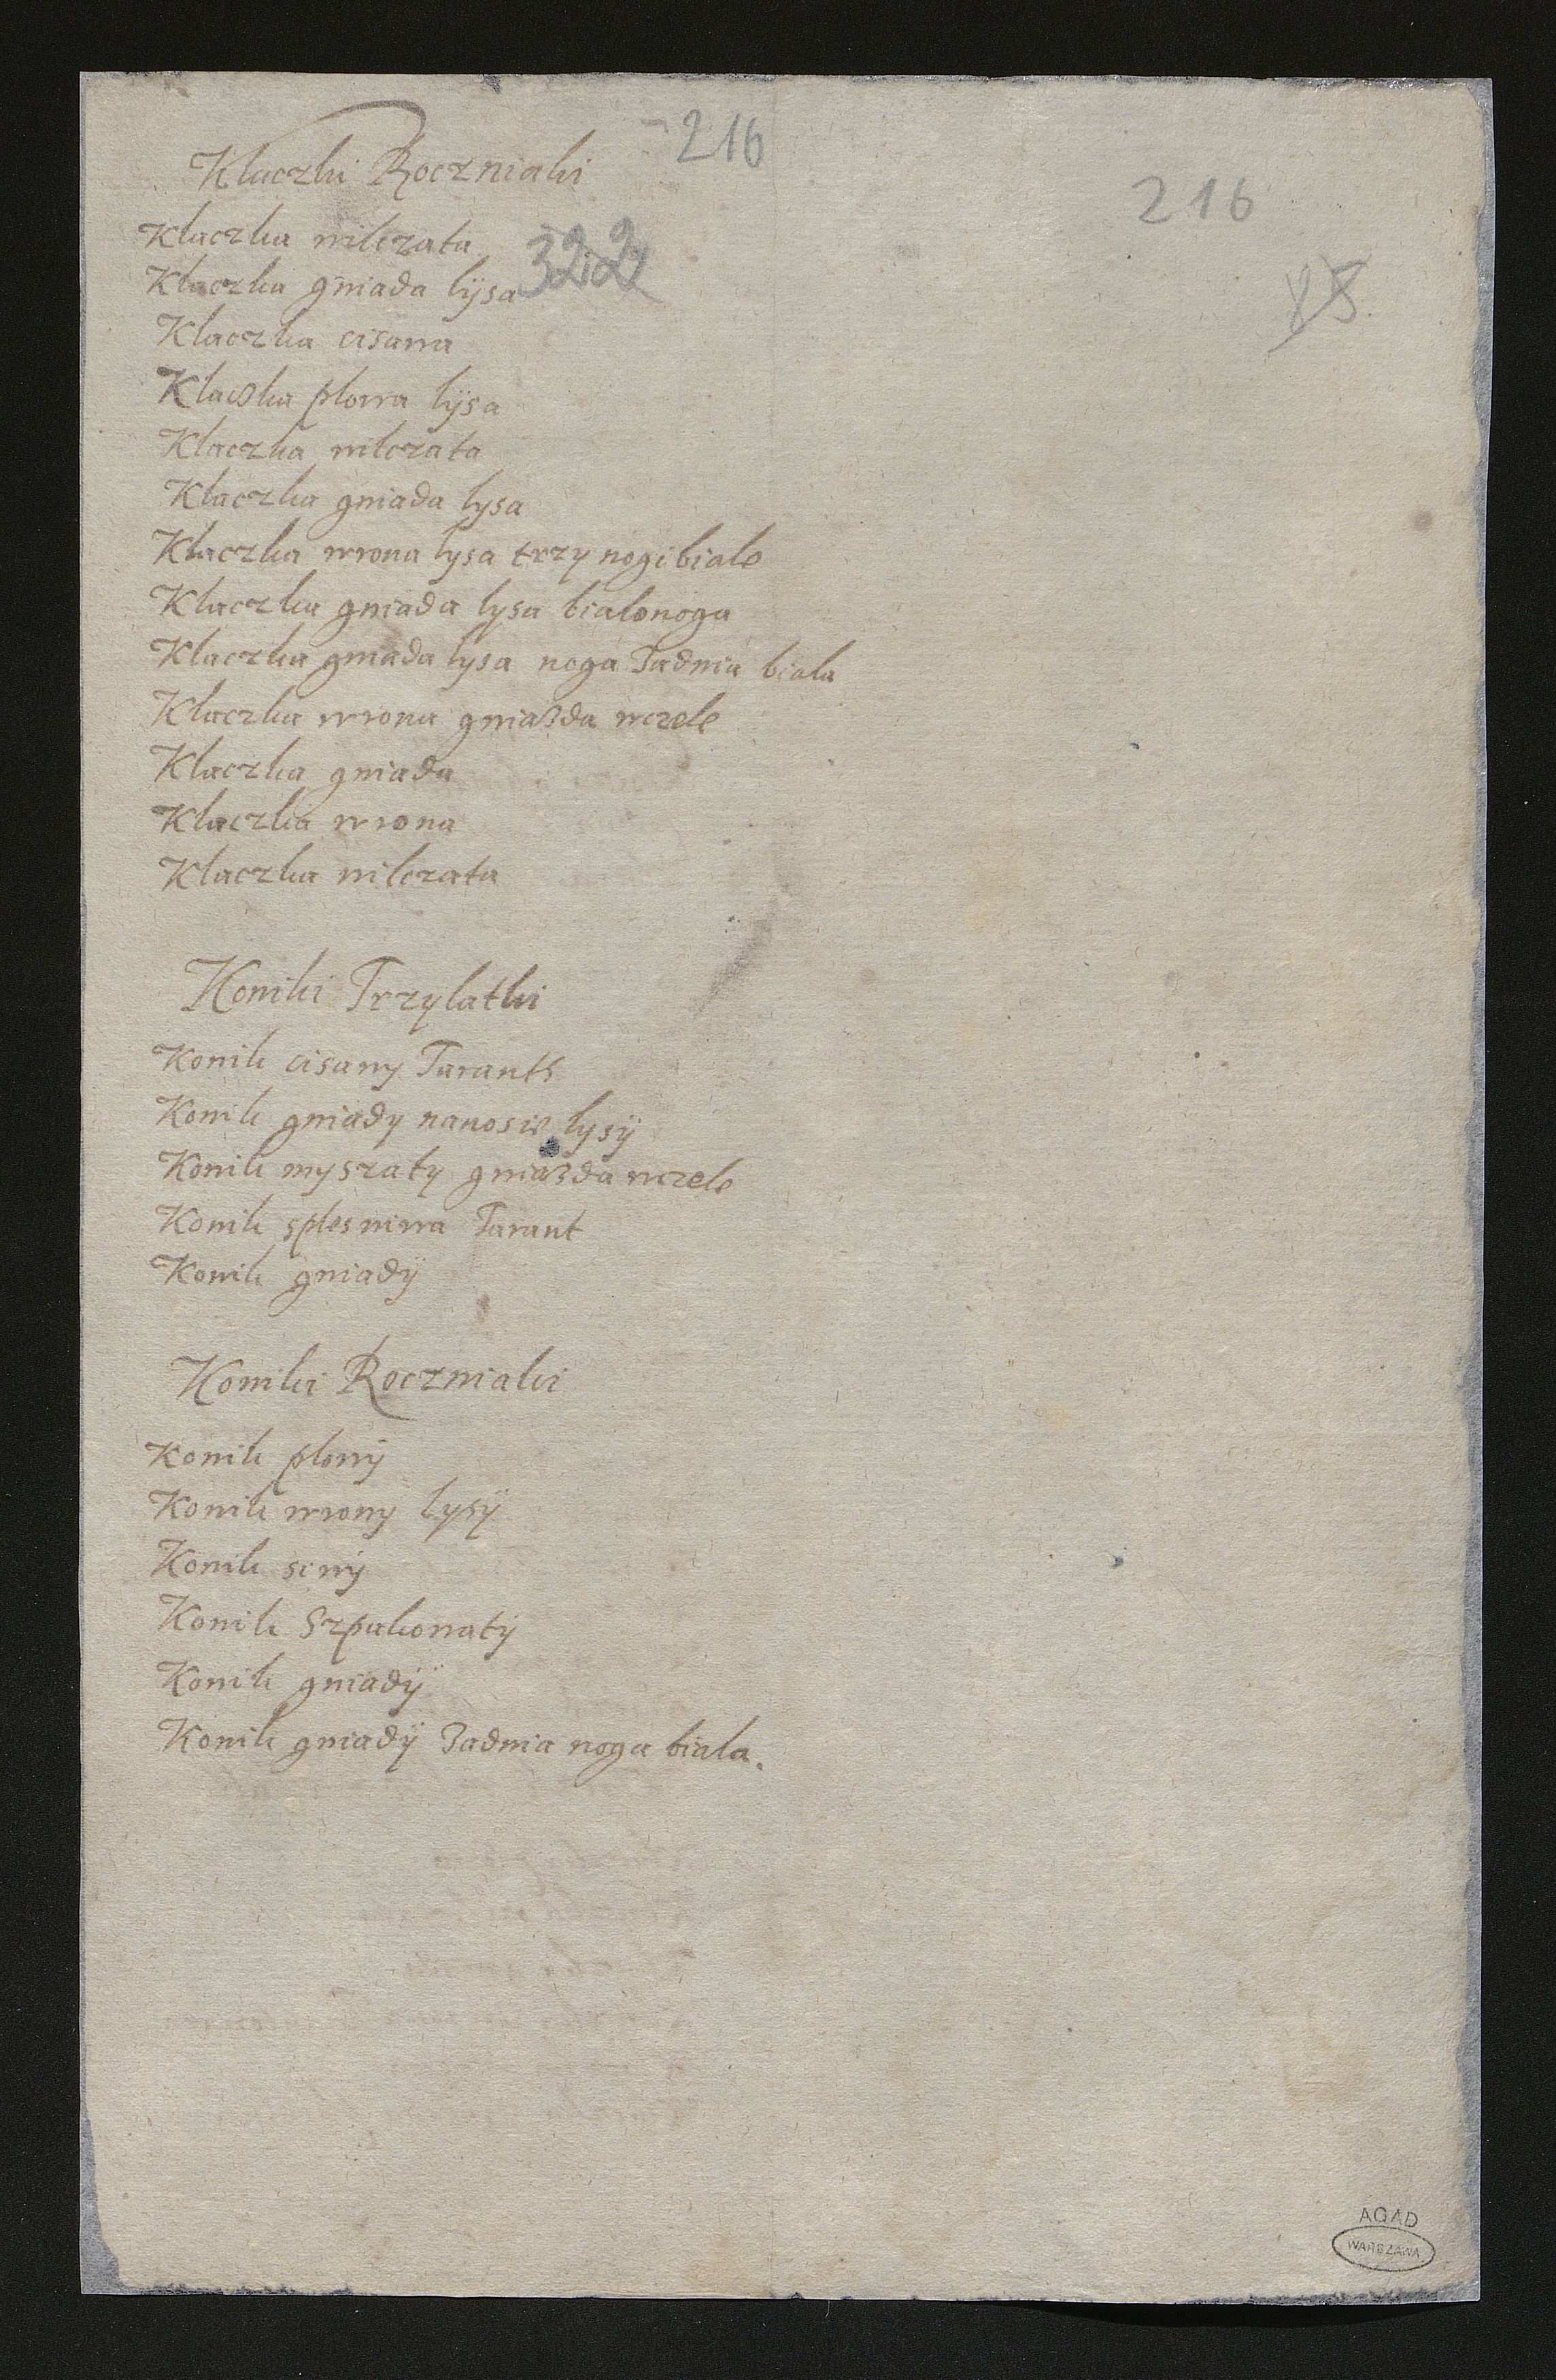 216
Klaczki Roczniaki
216
Klaczka wilczata
322
Klaczka gniada lÿsa
88
Klaczka cisawa
Klaczka plowa lÿsa
Klaczka wilczata
Klaczka gniada lysa
Klaczka wrona lysa trzy nogi biale
Klaczka gniada lysa bialonoga
Klaczka gniada lysa noga Zadnia biala
Klaczka wrona gniazda wczele
Klaczka gniada
Klaczka wrona
Klaczka wilczata
Koniki Trzylatki
Konik cisawy Tarant
Konik gniady lysÿ
Konik myszaty gniazda wczele
Konik splesniwa Tarant
Konik gniadÿ
Koniki Roczniaki
Konik plowÿ
Konik wrony lysÿ
Konik siwÿ
Konik Szpakowatÿ
Konik gniadÿ
Konik gniadÿ Zadnia noga biala.
AGAD
WARSZAWA